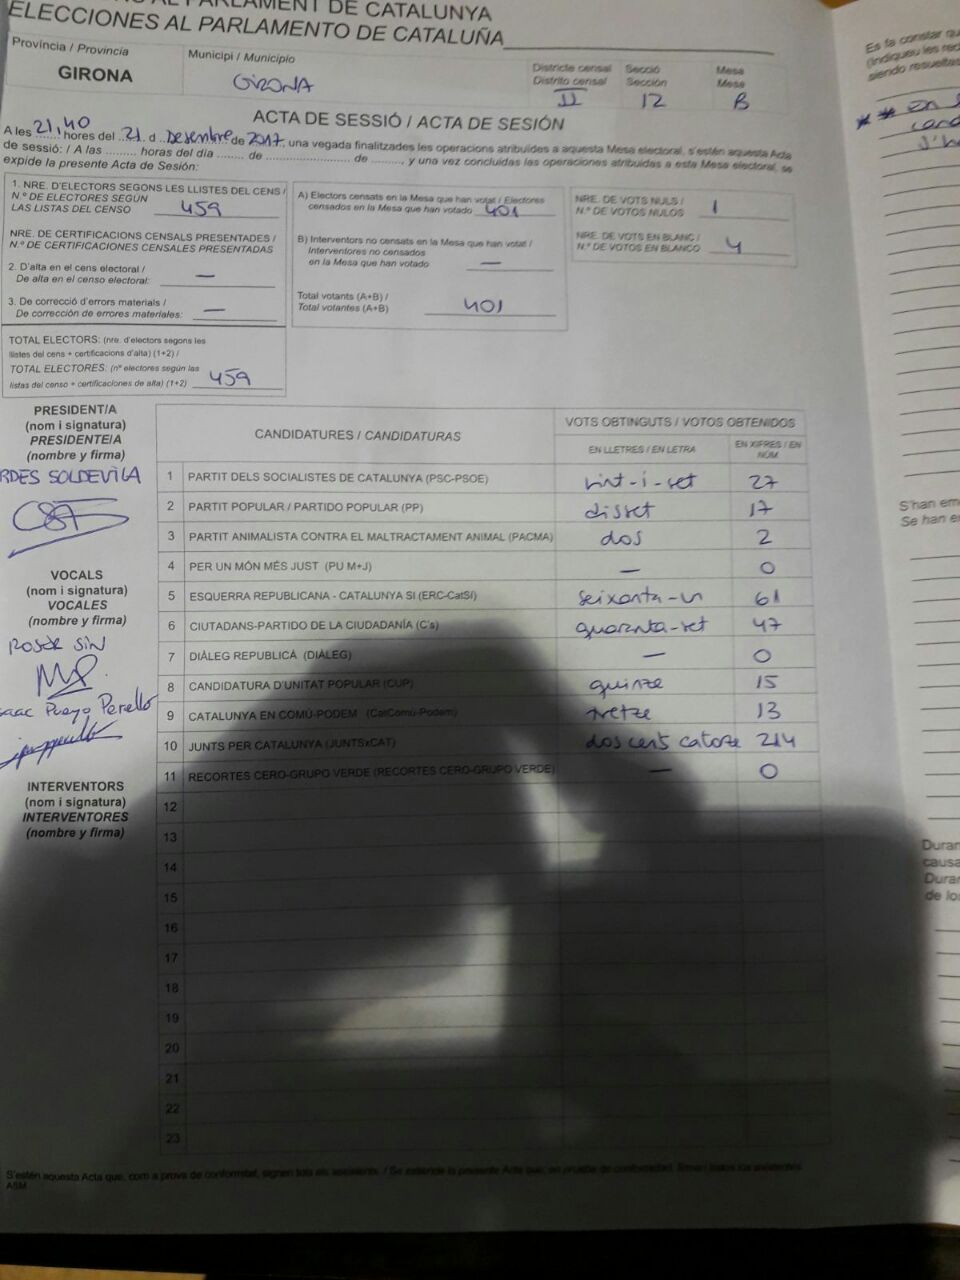 PARLAMENT DE CATALUNYA
ELECCIONES AL PARLAMENTO DE CATALUÑA
Província / Provincia
GIRONA
Municipi / Municipio
GIRONA
Districte censal
Distrito censal
II
Secció
Sección
12
Mesa
Mesa
B
ACTA DE SESSIÓ / ACTA DE SESIÓN
A les 21,40 hores del 21 d Desembre de 2017, una vegada finalitzades les operacions atribuïdes a aquesta Mesa electoral, s'estén aquesta Acta
de sessió: / A las ......... horas del día ....... de ..................... de ........, y una vez concluidas las operaciones atribuidas a esta Mesa electoral, se
expide la presente Acta de Sesión:
1. NRE. D'ELECTORS SEGONS LES LLISTES DEL CENS /
N.º DE ELECTORES SEGÚN
LAS LISTAS DEL CENSO 459
NRE. DE CERTIFICACIONS CENSALS PRESENTADES /
N.º DE CERTIFICACIONES CENSALES PRESENTADAS
2. D'alta en el cens electoral /
De alta en el censo electoral: —
3. De correcció d'errors materials /
De corrección de errores materiales: —
TOTAL ELECTORS: (nre. d'electors segons les
llistes del cens + certificacions d'alta) (1+2) /
TOTAL ELECTORES: (nº electores según las
listas del censo + certificaciones de alta) (1+2) 459
A) Electors censats en la Mesa que han votat / Electores
censados en la Mesa que han votado 401
B) Interventors no censats en la Mesa que han votat /
Interventores no censados
en la Mesa que han votado —
Total votants (A+B) /
Total votantes (A+B) 401
NRE. DE VOTS NULS /
N.º DE VOTOS NULOS 1
NRE. DE VOTS EN BLANC /
N.º DE VOTOS EN BLANCO 4
PRESIDENT/A
(nom i signatura)
PRESIDENTE/A
(nombre y firma)
RDES SOLDEVILA
VOCALS
(nom i signatura)
VOCALES
(nombre y firma)
ROSER SIN
saac Pueyo Perelló
INTERVENTORS
(nom i signatura)
INTERVENTORES
(nombre y firma)
CANDIDATURES / CANDIDATURAS
VOTS OBTINGUTS / VOTOS OBTENIDOS
EN LLETRES / EN LETRA
EN XIFRES / EN NÚM
1 PARTIT DELS SOCIALISTES DE CATALUNYA (PSC-PSOE) vint-i-set 27
2 PARTIT POPULAR / PARTIDO POPULAR (PP) disset 17
3 PARTIT ANIMALISTA CONTRA EL MALTRACTAMENT ANIMAL (PACMA) dos 2
4 PER UN MÓN MÉS JUST (PU M+J) — 0
5 ESQUERRA REPUBLICANA - CATALUNYA SI (ERC-CatSí) seixanta-un 61
6 CIUTADANS-PARTIDO DE LA CIUDADANÍA (C's) quaranta-set 47
7 DIÀLEG REPUBLICÀ (DIÀLEG) — 0
8 CANDIDATURA D'UNITAT POPULAR (CUP) quinze 15
9 CATALUNYA EN COMÚ-PODEM (CatComú-Podem) tretze 13
10 JUNTS PER CATALUNYA (JUNTSxCAT) dos cents catorze 214
11 RECORTES CERO-GRUPO VERDE (RECORTES CERO-GRUPO VERDE) — 0
12
13
14
15
16
17
18
19
20
21
22
23
S'estén aquesta Acta que, com a prova de conformitat, signen tots els assistents. / Se extiende la presente Acta que, en prueba de conformidad, firman todos los asistentes.
Es fa constar qu
(Indiqueu les rec
siendo resueltas
S'han em
Se han e
Duran
causa
Duran
de lo